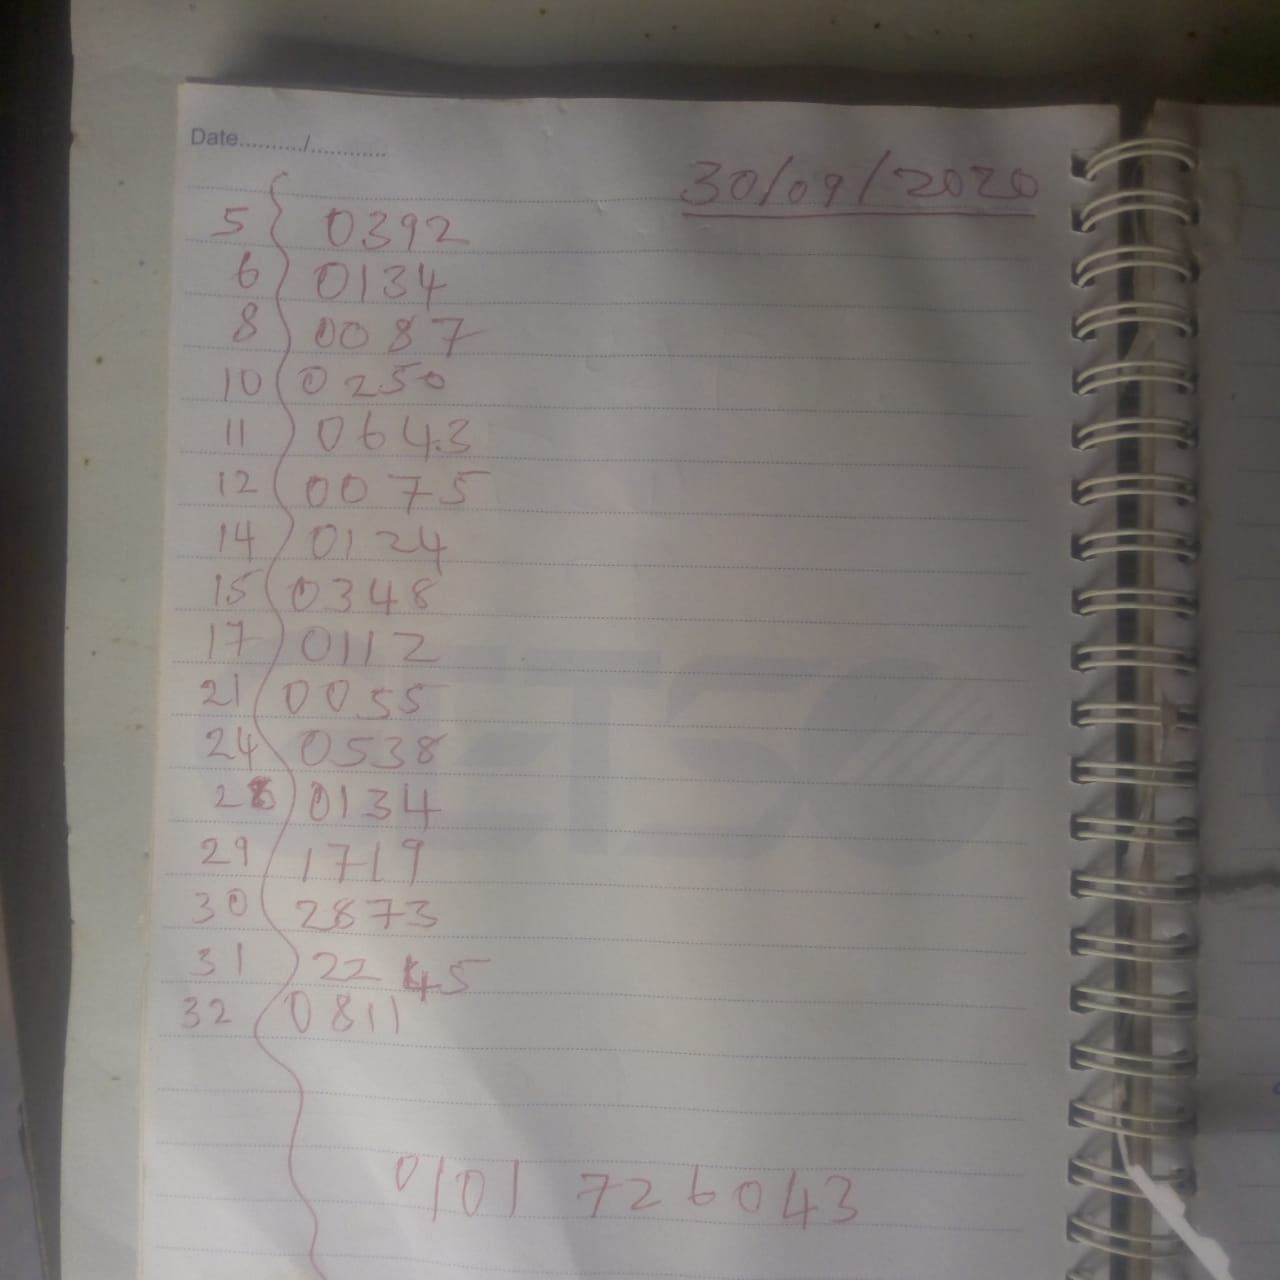 Date........../............
30/09/2020
5 { 0392
6 0134
8 0087
10 0250
11 0643
12 0075
14 0124
15 0348
17 0112
21 0055
24 0538
0134
29 1719
30 2873
31 2245
32 0811
0101 726043